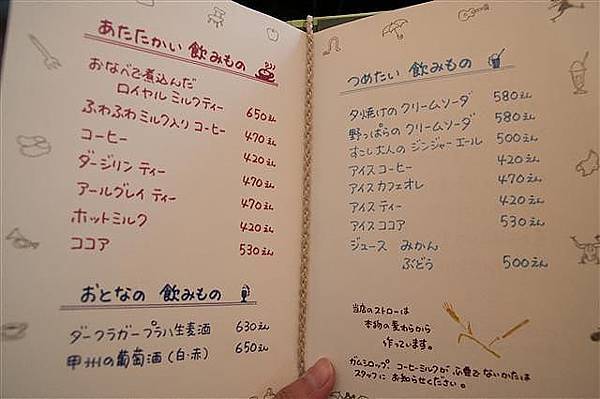 あたたかい 飲みもの
おなべで煮込んだ
ロイヤル ミルクティー 650えん
ふわふわミルク入り コーヒー 470えん
コーヒー 420えん
ダージリン ティー 470えん
アールグレイ ティー 470えん
ホットミルク 420えん
ココア 530えん
おとなの 飲みもの
ダークラガープラハ生麦酒 630えん
甲州の葡萄酒(白・赤) 650えん
つめたい 飲みもの
夕焼けの クリームソーダ 580えん
野っぱらの クリームソーダ 580えん
すこし大人の ジンジャーエール 500えん
アイスコーヒー 420えん
アイスカフェオレ 470えん
アイスティー 420えん
アイス ココア 530えん
ジュース みかん
ぶどう 500えん
当店のストローは
本物の麦わらから
作っています。
ガムシロップ、コーヒーミルクが必要でないかたは
スタッフに お知らせください。